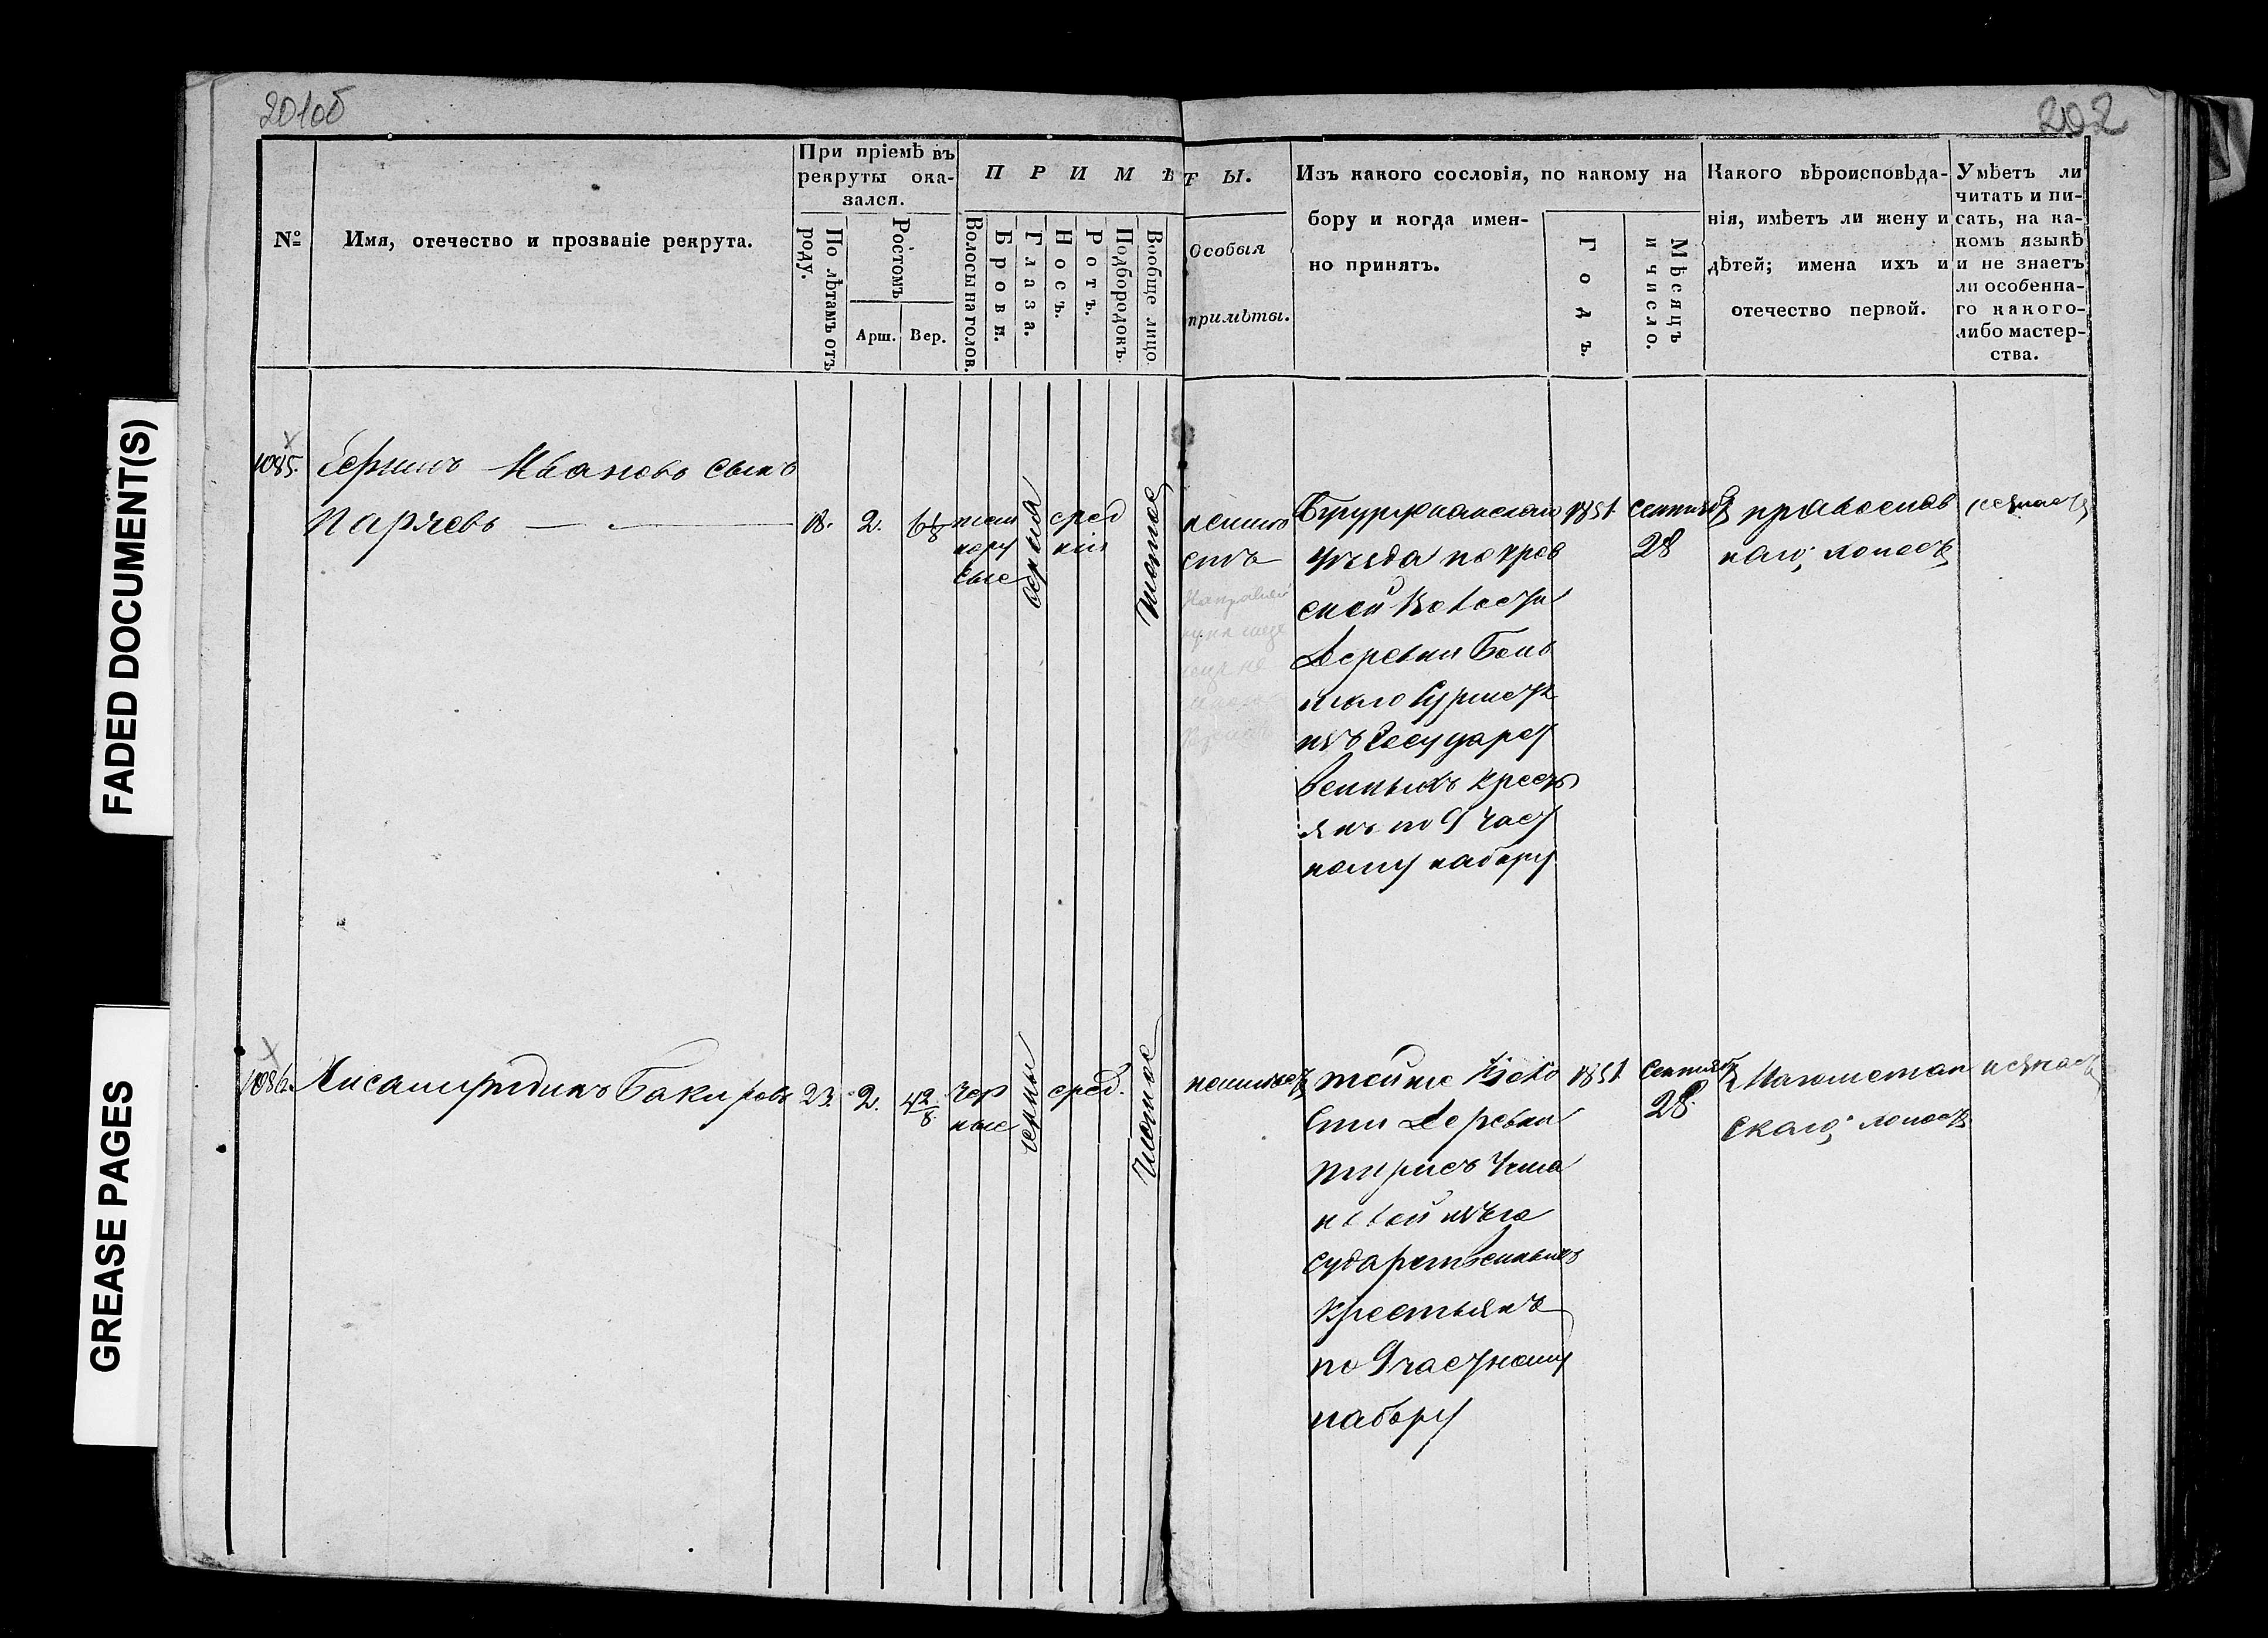 201об
202
FADED DOCUMENT(S)
GREASE PAGES
№
Имя, отечество и прозваніе рекрута.
При пріемѣ въ
рекруты ока-
зался.
По лѣтамъ отъ
роду.
Ростомъ
Арш.
Вер.
ПРИМѢТЫ.
Волосы на голов.
Брови.
Глаза.
Носъ.
Ротъ.
Подбородокъ.
Вообще лицо.
Особыя
примѣты.
Изъ какого сословія, по какому на
бору и когда имен-
но принятъ.
Годъ.
Мѣсяцъ
и число.
Какого вѣроисповѣда-
нія, имѣетъ ли жену и
дѣтей; имена ихъ и
отечество первой.
Умѣетъ ли
читать и пи-
сать, на ка-
комъ языкѣ
и не знаетъ
ли особенна-
го какого-
либо мастер-
ства.
1085.
Ивановъ сынъ
Паряевъ
18.
2.
6 1/8
темн
нору
сые
сред
ніи
чистое
неимѣ
етъ
уѣзда
ской Волости
Деревни Боль
изъ Государст
венныхъ кресть
янъ по 9 част
ному набору
1851
Сентября
28
православ
наго, холостъ
незнаетъ
1086.
Бакировъ
23.
2.
4 2/8
чер
ные
сред.
чистое
неимѣетъ
тойже Воло
сти Деревни
изъ го
сударственныхъ
крестьянъ
по 9 частному
набору
1851
Сентября
28
Магометан
скаго, холостъ
незнаетъ